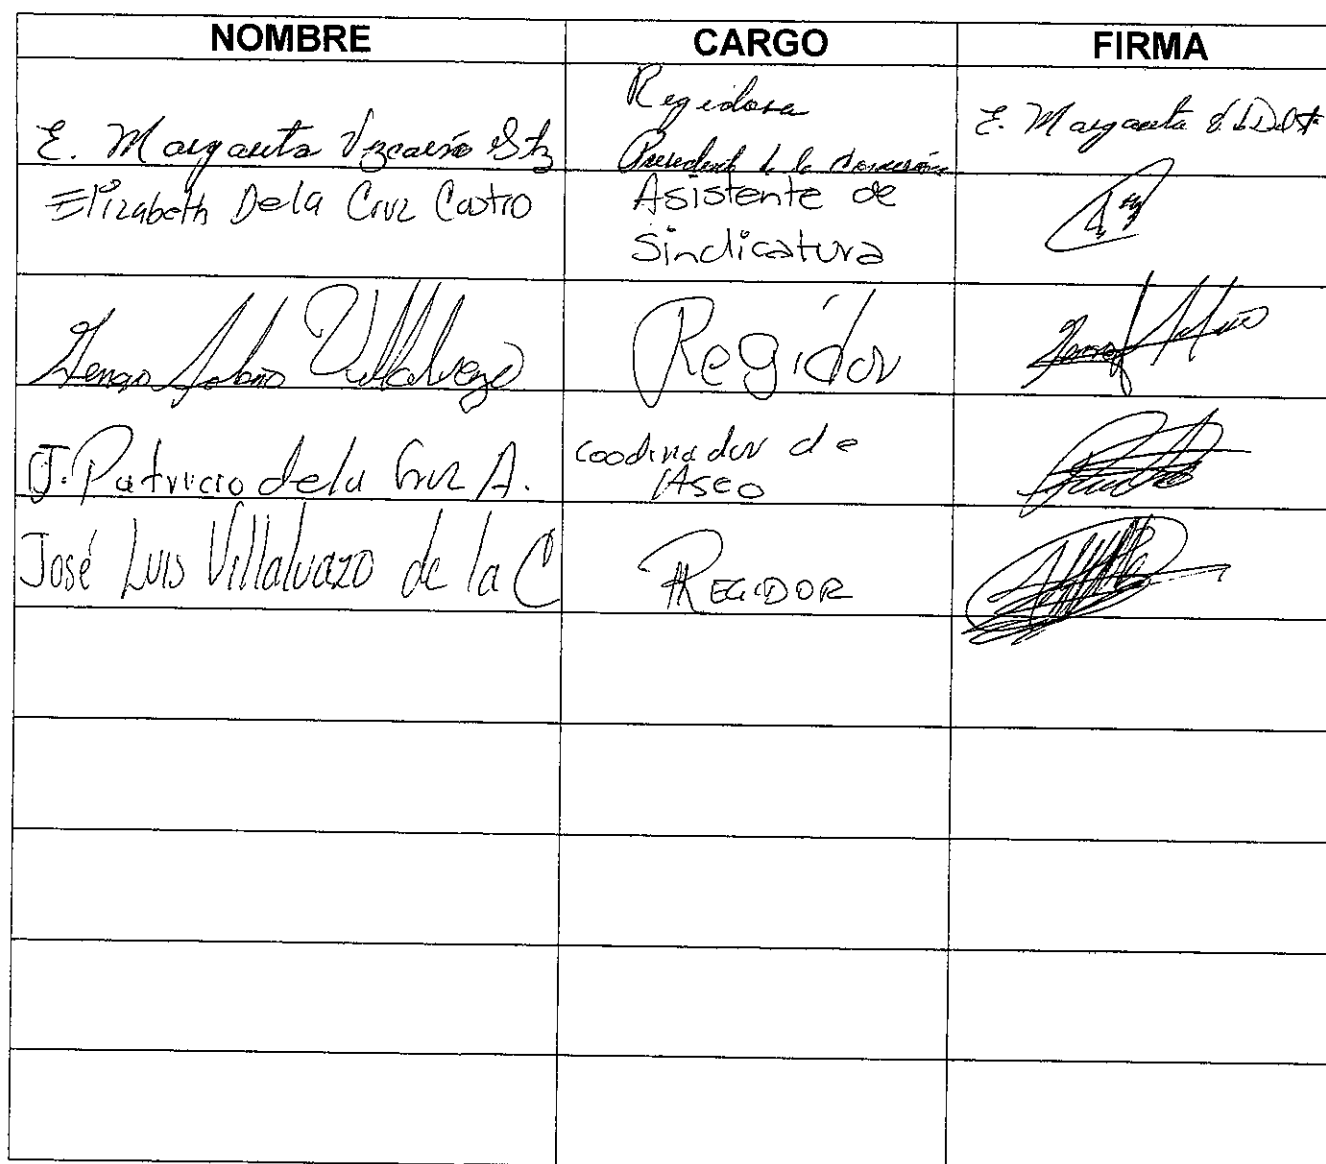 NOMBRE CARGO FIRMA
E. Margarita Vizcaíno Gtz Regidora E. Margarita
Presidente de la Comisión
Elizabeth De la Cruz Castro Asistente de
Sindicatura
Villalvazo Regidor
J. Patricio de la Cruz A. coodinador de
Aseo
José Luis Villalvazo de la C REGIDOR